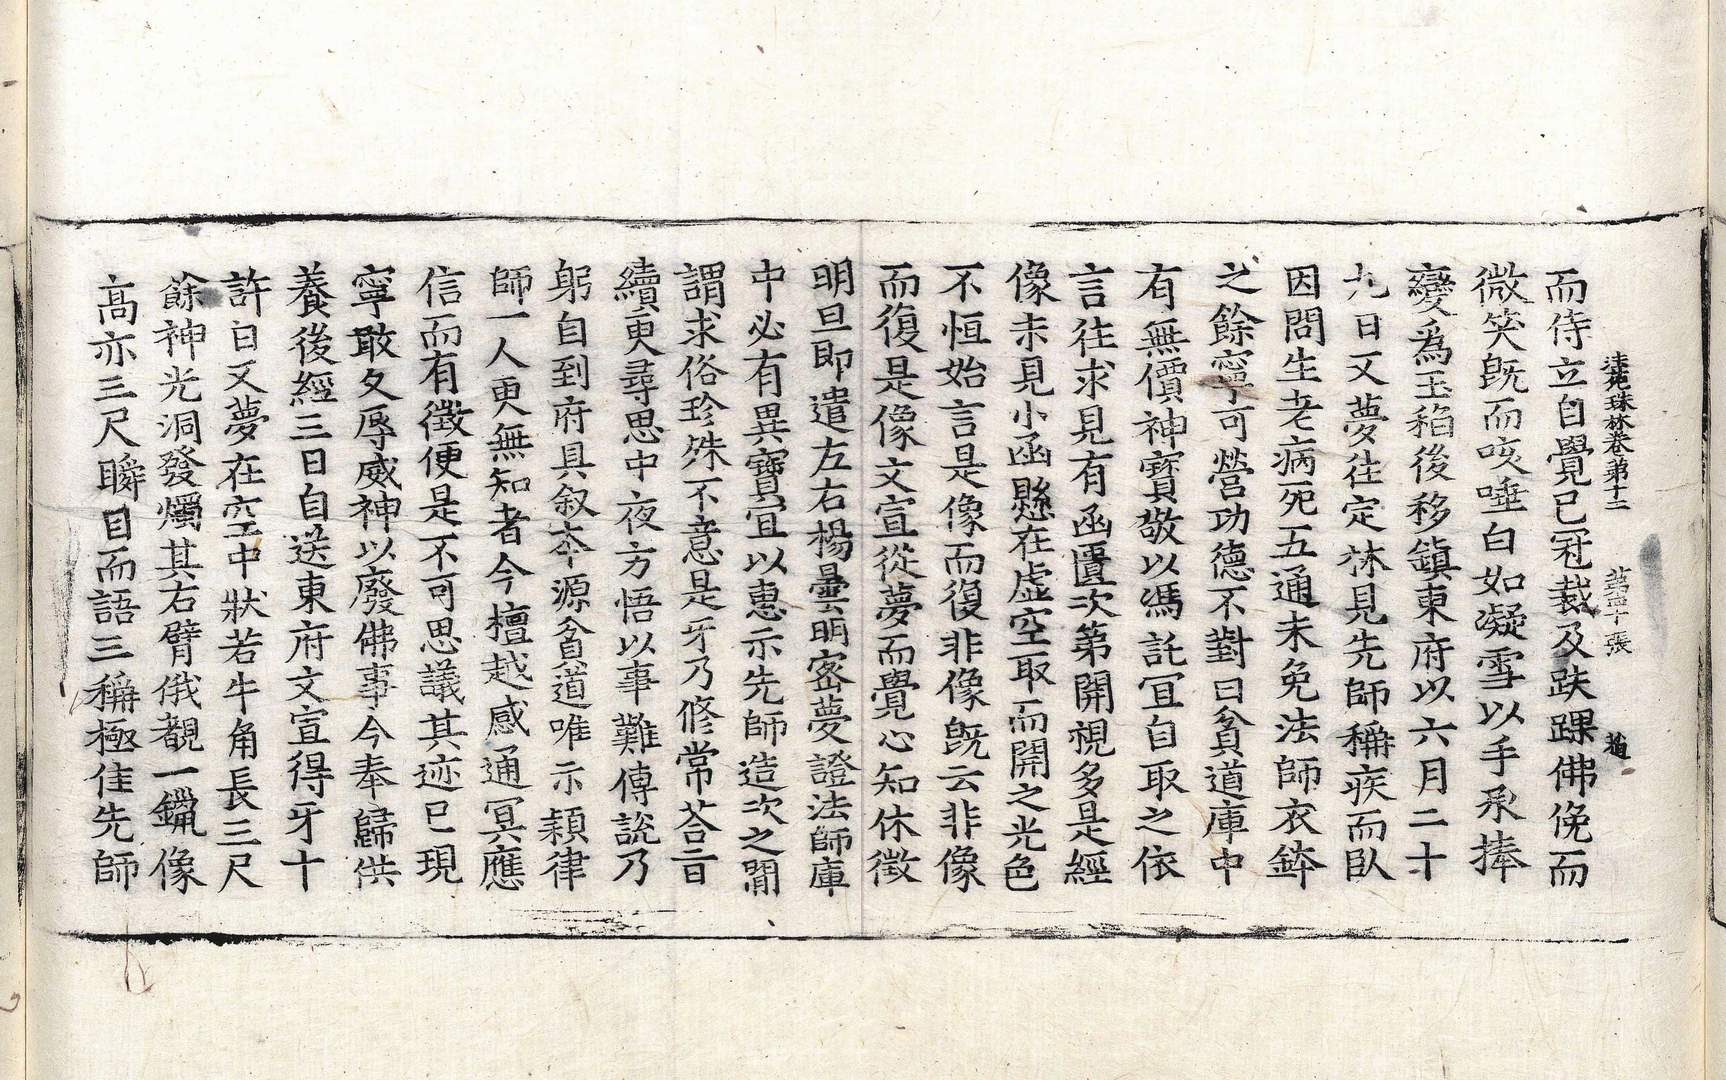 法苑珠林卷第十二 第十張 㯳
而侍立自覺已冠裁及趺踝佛俛而
微笑旣而咳唾白如凝雪以手承捧
變爲玉稻後移鎮東府以六月二十
九日又夢往定林見先師稱疾而臥
因問生老病死五通未免法師衣鉢
之餘寧可營功德不對曰貧道庫中
有無價神寶敬以憑託冝自取之依
言往求見有函匱次第開視多是經
像未見小函懸在虚空取而開之光色
不恒始言是像而復非像旣云非像
而復是像文宣從夢而覺心知休徴
明旦即遣左右楊曇明密夢證法師庫
中必有異寶冝以惠示先師造次之間
謂求俗珍殊不意是牙乃修常荅旨
續更尋思中夜方悟以事難傳說乃
躬自到府具叙夲源貧道唯示穎律
師一人更無知者今檀越感通冥應
信而有徴便是不可思議其迹已現
寧敢久辱威神以廢佛事今奉歸供
養後經三日自送東府文宣得牙十
許日又夢在空中狀若牛角長三尺
餘神光洞發燭其右臂俄覩一鑞像
高亦三尺瞬目而語三稱極佳先師